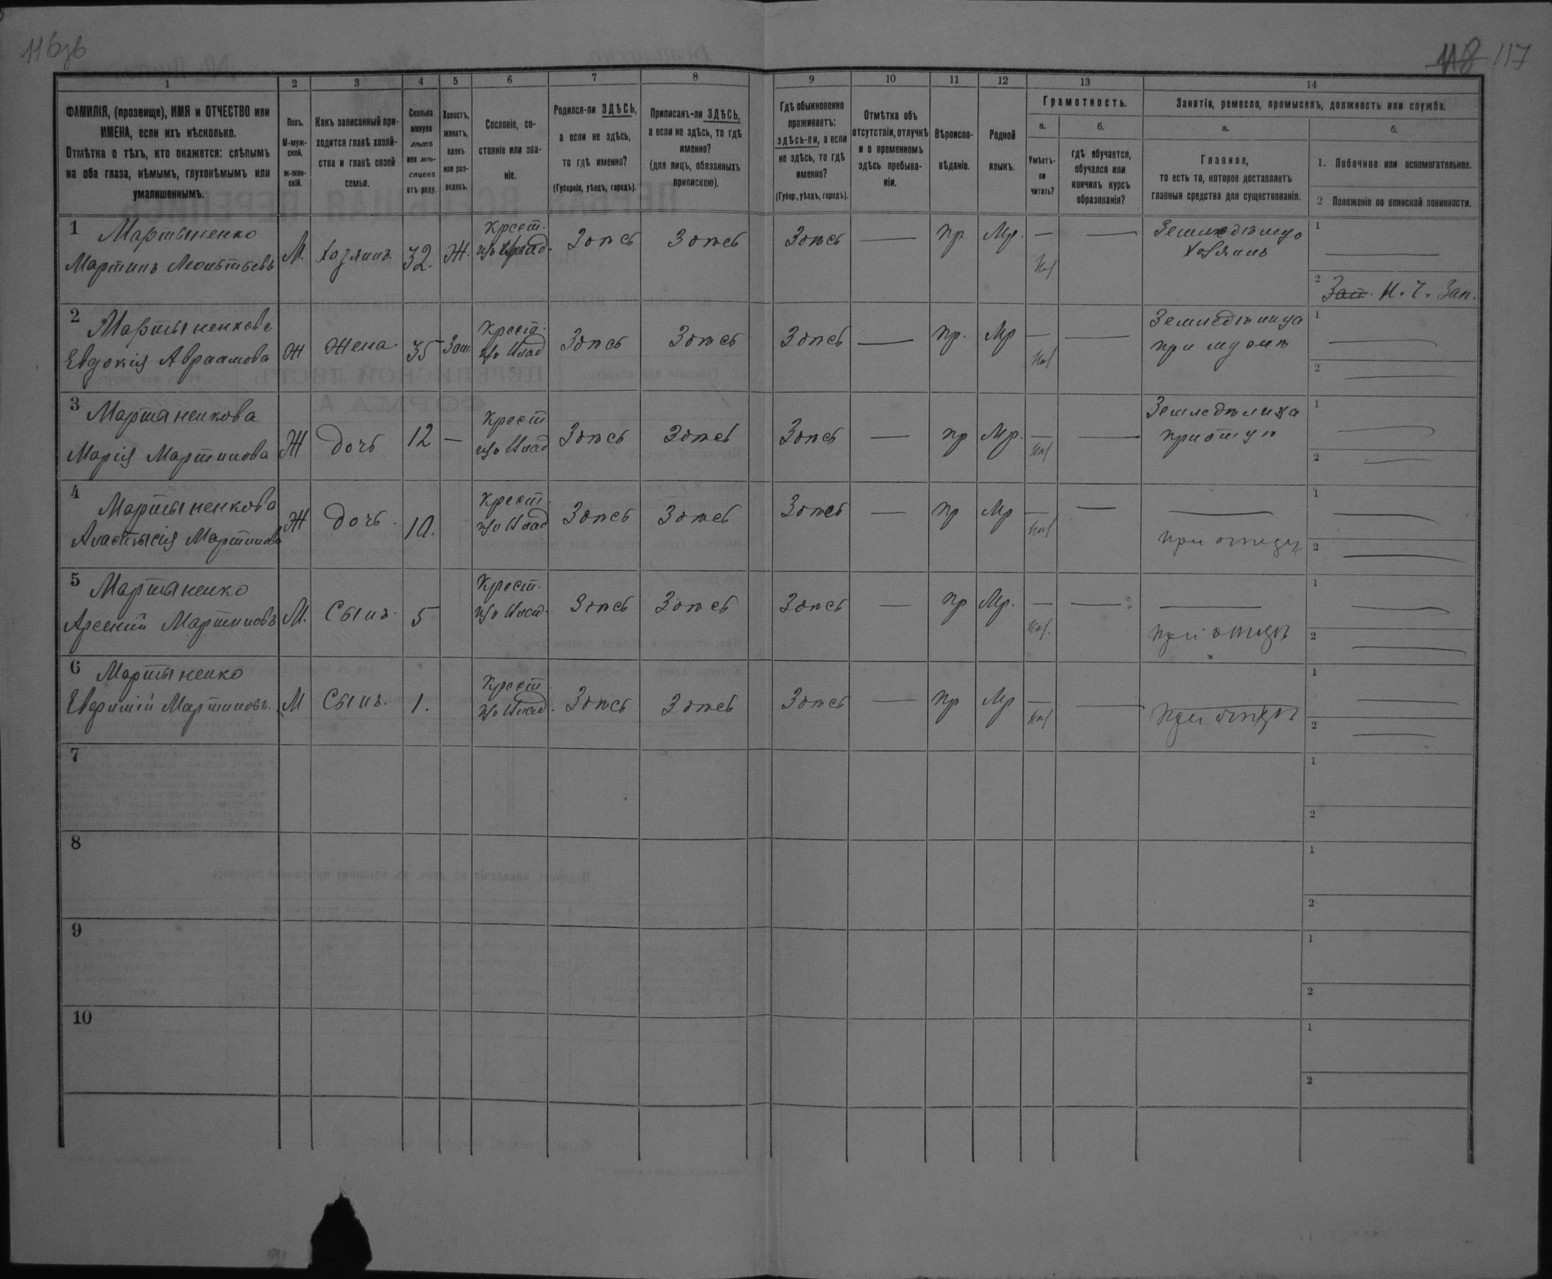 116 зв
118 117
1 2 3 4 5 6 7 8 9 10 11 12 13 14
ФАМИЛІЯ, (прозвище), ИМЯ и ОТЧЕСТВО или
ИМЕНА, если ихъ нѣсколько.
Отмѣтка о тѣхъ, кто окажется: слѣпымъ
на оба глаза, нѣмымъ, глухонѣмымъ или
умалишеннымъ.
Полъ.
М-муж-
ской.
ж-жен-
скій.
Какъ записанный при-
ходится главѣ хозяй-
ства и главѣ своей
семьи.
Сколько
минуло
лѣтъ
или мѣ-
сяцевъ
отъ роду.
Холостъ,
женатъ,
вдовъ
или раз-
веденъ.
Сословіе, со-
стояніе или зва-
ніе.
Родился-ли ЗДѢСЬ,
а если не здѣсь,
то гдѣ именно?
(Губернія, уѣздъ, городъ).
Приписанъ-ли ЗДѢСЬ,
а если не здѣсь, то гдѣ
именно?
(для лицъ, обязанныхъ
припискою).
Гдѣ обыкновенно
проживаетъ:
здѣсь-ли, а если
не здѣсь, то гдѣ
именно?
(Губер., уѣздъ, городъ).
Отмѣтка объ
отсутствіи, отлучкѣ
и о временномъ
здѣсь пребыва-
ніи.
Вѣроиспо-
вѣданіе.
Родной
языкъ.
Грамотность.
а. б.
Умѣетъ-
ли
читать?
гдѣ обучается,
обучался или
кончилъ курсъ
образованія?
Занятіе, ремесло, промыселъ, должность или служба.
а. б.
Главное,
то есть то, которое доставляетъ
главныя средства для существованія.
1. Побочное или вспомогательное.
2 Положеніе по воинской повинности.
1 Мартыненко
Мартинъ Леонтьевъ М. Хозяинъ 32. Ж. Крест. Здѣсь Здѣсь Здѣсь — пр. Мр. — —
Хозяинъ 1 —
2 Зап. Зап.
2 Мартыненкова
Евдокія Авраамова Ж Жена 35 Зам. Крест. Здѣсь Здѣсь Здѣсь — пр. Мр — —
при мужѣ 1 —
2 —
3 Мартыненкова
Марія Мартинова Ж Дочь 12 — Крест Здѣсь Здѣсь Здѣсь — пр Мр. — —
1 —
2 —
4 Мартыненкова
Мартинова Ж Дочь. 10. Крест. Здѣсь Здѣсь Здѣсь — пр Мр — — —
при отцѣ 1 —
2 —
5 Мартыненко
Арсеній Мартиновъ М. Сынъ. 5 Крест. Здѣсь Здѣсь Здѣсь — пр Мр. — — —
при отцѣ 1 —
2 —
6 Мартыненко
Евфимій Мартиновъ. М Сынъ. 1. Крест. Здѣсь Здѣсь Здѣсь — пр Мр — — —
при отцѣ 1 —
2 —
7 1
2
8 1
2
9 1
2
10 1
2